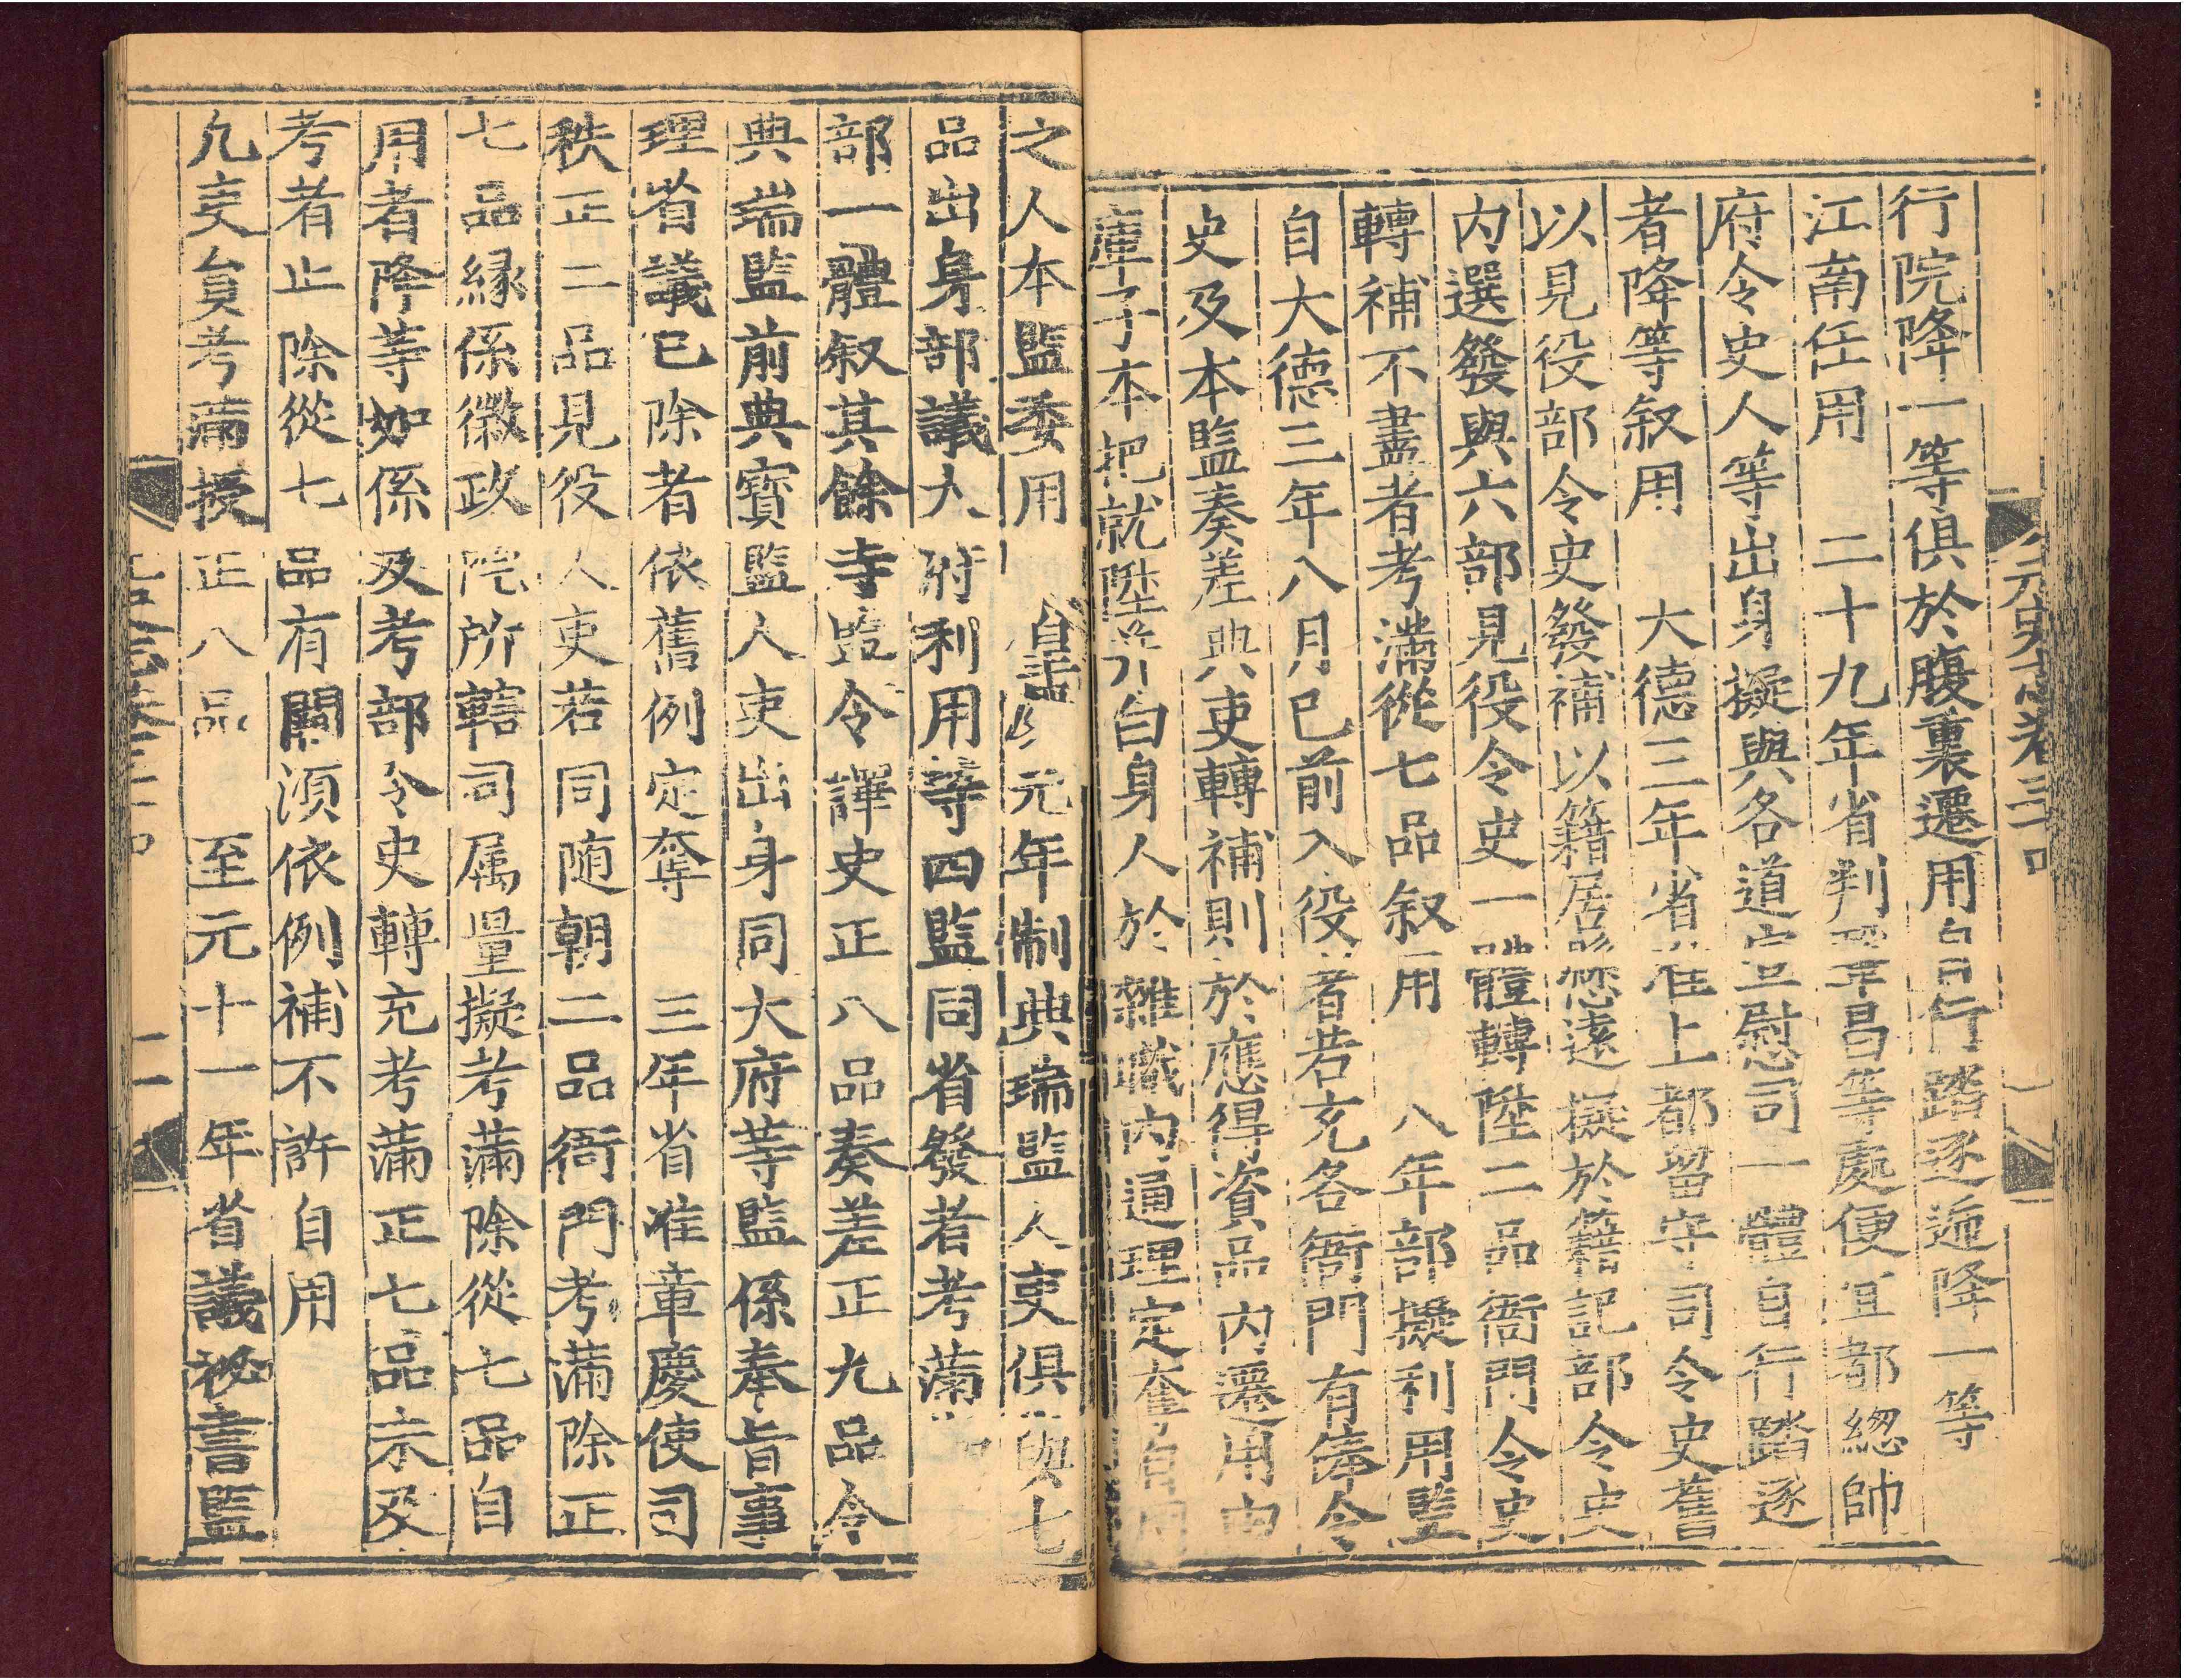 元史志卷三
行院降一等俱於腹裏遷用自行踏逐遞降一等
江南任用　二十九年省判　昌等處便宜都緫帥
府令史人等出身擬與各道宣慰司一體自行踏逐
者降等叙用　大德三年省准上都留守司令史舊
以見役部令史發補以籍居懸遠擬於籍記部令史
内選發與六部見役令史一體轉陞二品衙門令史
轉補不盡者考滿從七品叙用　八年部擬利用監
自大德三年八月已前入役者若充各衙門有俸令
史及本監奏差典吏轉補則於應得資品内遷用由
庫子本把就陞并白身人於雜職内通理定奪自用
之人本監委用　皇　元年制典瑞監人吏俱與七
品出身部議太府利用等四監同省發者考滿
部一體叙其餘寺監令譯史正八品奏差正九品令
典瑞監前典寶監人吏出身同太府等監係奉旨事
理省議已除者依舊例定奪　三年省准章慶使司
秩正二品見役人吏若同随朝二品衙門考滿除正
七品縁係徽政院所轄司属量擬考滿除從七品自
用者降等如係及考部令史轉充考滿正七品未及
考者止除從七品有闕湏依例補不許自用
凡吏員考滿授正八品　至元十一年省議祕書監
二